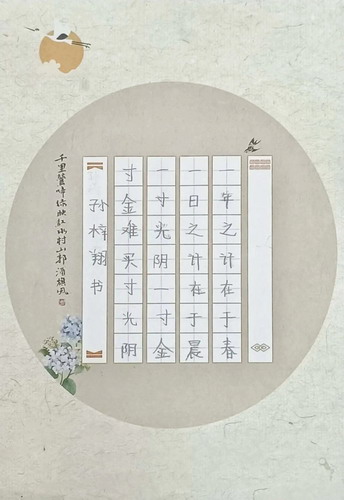 一年之计在于春
一日之计在于晨
一寸光阴一寸金
寸金难买寸光阴
孙梓翔书
千里莺啼绿映红水村山郭酒旗风